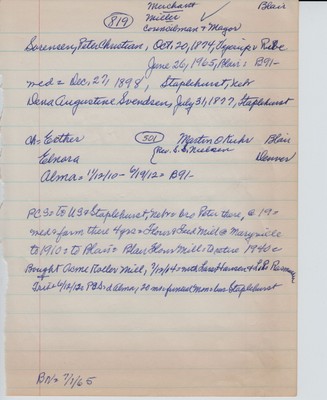 819 Merchant Blair
Miller
Councilman & Mayor
Sorensen, Peter Christian, Oct 20, 1874, Vejrup & Ribe
June 26, 1965, Blair: B91-
med = Dec, 27, 1898, Staplehurst, Neb
Dena Augustine Svendsen, July 31, 1877, Staplehurst
ch = Esther 501 Martin O Kuhr Blair
Elnora Rev. S. S. Nielsen Denver
Alma = 1/12/10 - 6/19/12 = B91-
PCS = to US = Staplehurst, Neb = bro Peter there, @ 19 =
med = farm there 4 yrs = Flour & Feed Mill @ Marysville
to 1910 = to Blair = Blair Flour Mill = to retire 1940 =
Bought Acme Roller Mill, with Lars Hansen &
6/12/12 PCS, d Alma, Staplehurst
BN = 7/1/65